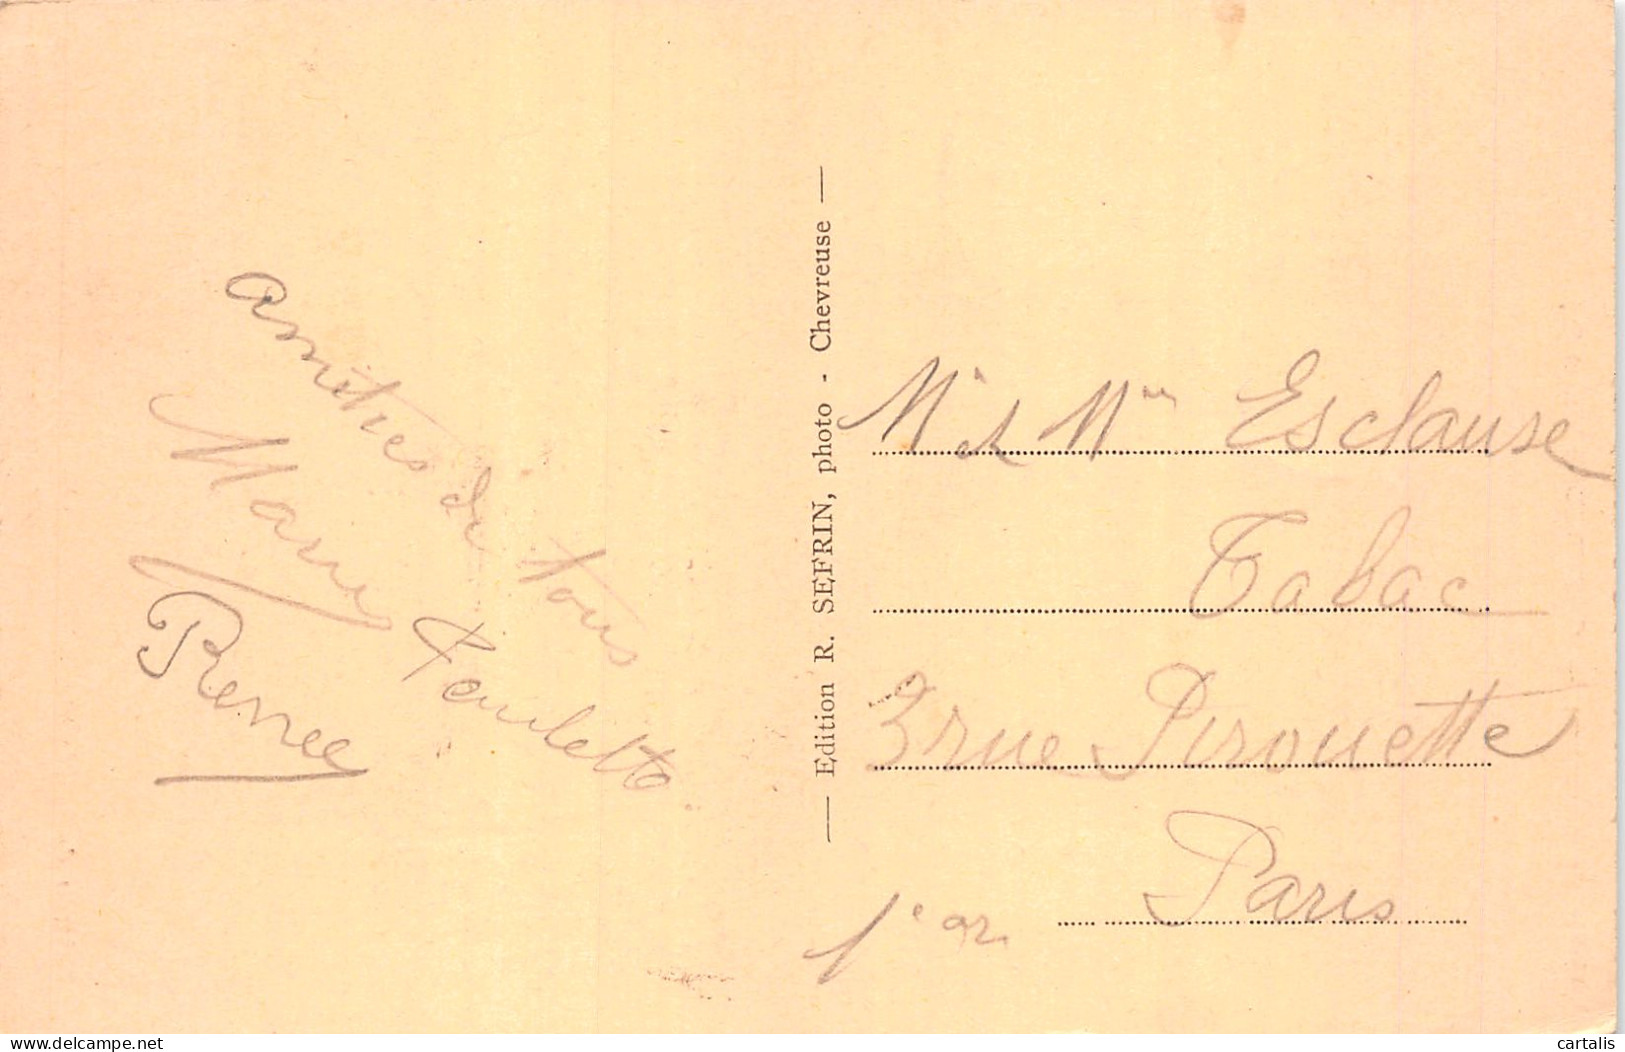 Amitiés de tous
Marie Paulette
Renée
— Edition R. SEFRIN, photo - Chevreuse —
Mr et Mme Esclause
Tabac
3 rue Pirouette
Paris
1e ar
delcampe.net
cartalis